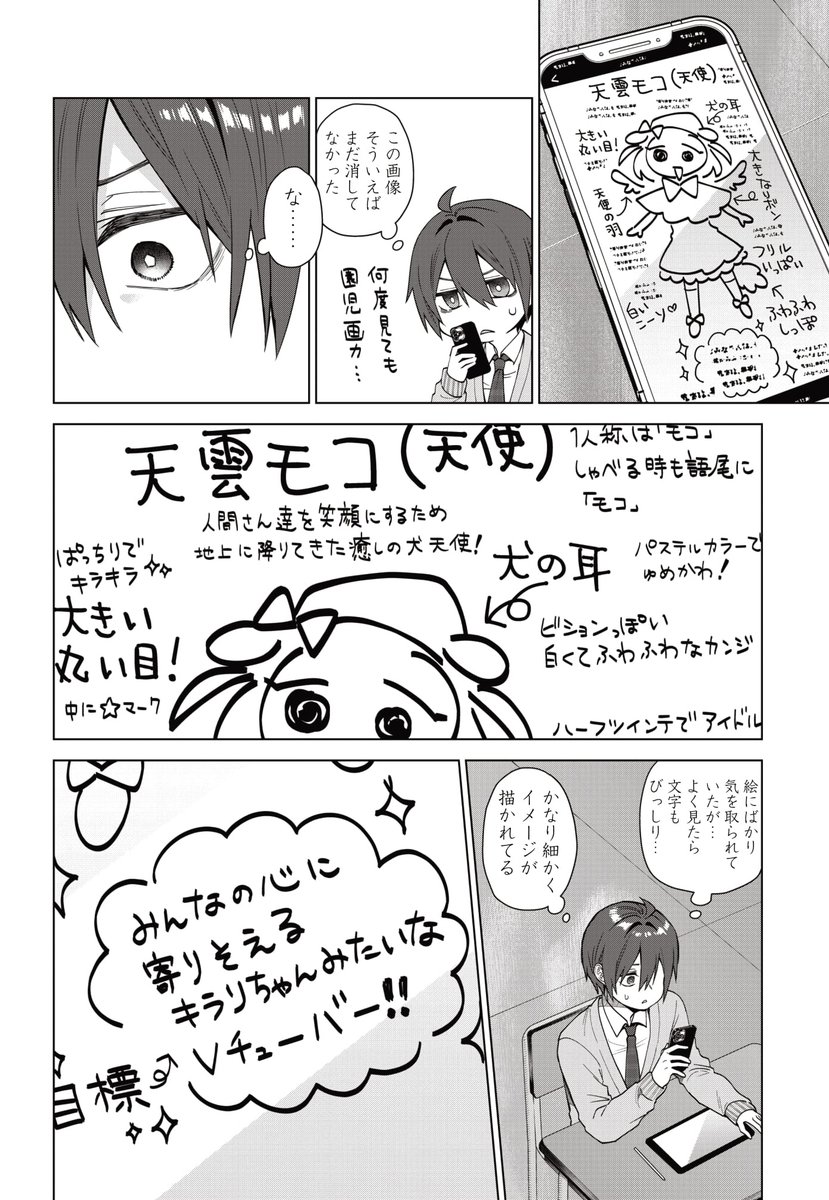 天雲モコ(天使)
犬の耳
大きい
丸い目!
大きなリボン
天使の羽
フリル
いっぱい
白い
ニーソ♡
ふわふわ
しっぽ
この画像
そういえば
まだ消して
なかった
何度見ても
園児画力…
な……
天雲モコ(天使)
1人称は「モコ」
しゃべる時も語尾に
「モコ」
人間さん達を笑顔にするため
地上に降りてきた癒しの犬天使!
ぱっちりで
キラキラ
大きい
丸い目!
中に☆マーク
犬の耳
パステルカラーで
ゆめかわ!
ビションっぽい
白くてふわふわなカンジ
ハーフツインテでアイドル
絵にばかり
気を取られて
いたが…
よく見たら
文字も
びっしり…
かなり細かく
イメージが
描かれてる
みんなの心に
寄りそえる
キラリちゃんみたいな
Vチューバー!!
目標